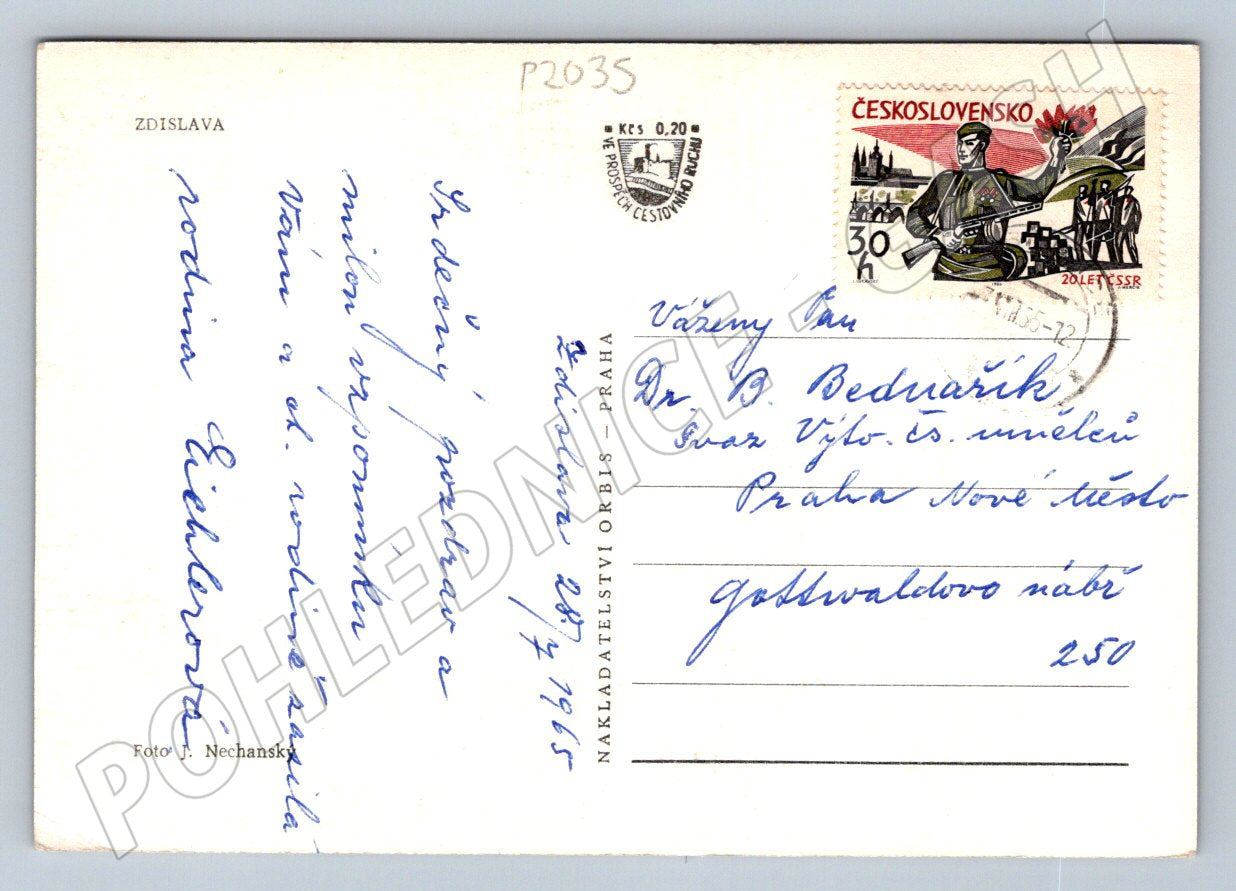 P2035
ZDISLAVA
Kčs 0,20
VE PROSPĚCH CESTOVNÍHO RUCHU
ČESKOSLOVENSKO
30 h
20 LET ČSSR
65-12
Ždislava 28/7 1965
Srdečný pozdrav a
milou vzpomínku
Vám a ct. rodině zasílá
rodina Eichlerová
Foto J. Nechanský
NAKLADATELSTVÍ ORBIS — PRAHA
Vážený Pan
Dr. B. Bednařík
Svaz Výtv. čs. umělců
Praha Nové Město
Gottwaldovo nábř
250
POHLEDNICE - CSH